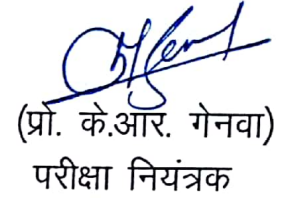 (प्रो. के.आर. गेनवा)
परीक्षा नियंत्रक